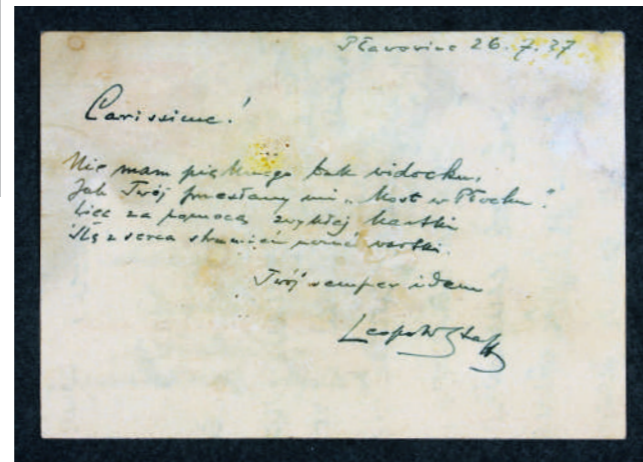 Pławowice 26.7.37
Carissime!
Nie mam pięknego tak widoku,
Jak Twój przesłany mi „Most w Płocku".
Więc za pomocą zwykłej kartki
Ślę z serca strumień wartki.
Twój semper idem
Leopold Staff